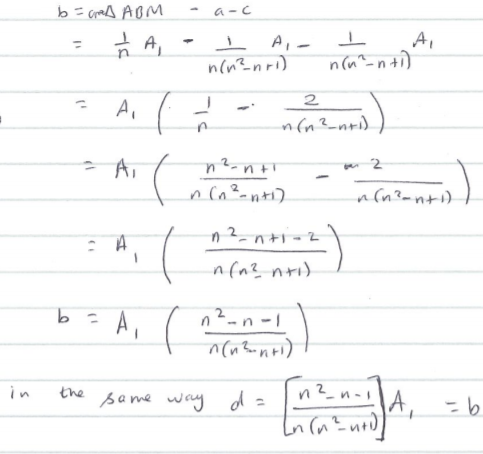 b = area Δ ABM - a - c
= 1/n A₁ - 1/n(n²-n+1) A₁ - 1/n(n²-n+1) A₁
= A₁ ( 1/n - 2/n(n²-n+1) )
= A₁ ( n²-n+1/n(n²-n+1) - 2/n(n²-n+1) )
= A₁ ( n²-n+1-2/n(n²-n+1) )
b = A₁ ( n²-n-1/n(n²-n+1) )
in the same way d = [ n²-n-1/n(n²-n+1) ] A₁ = b